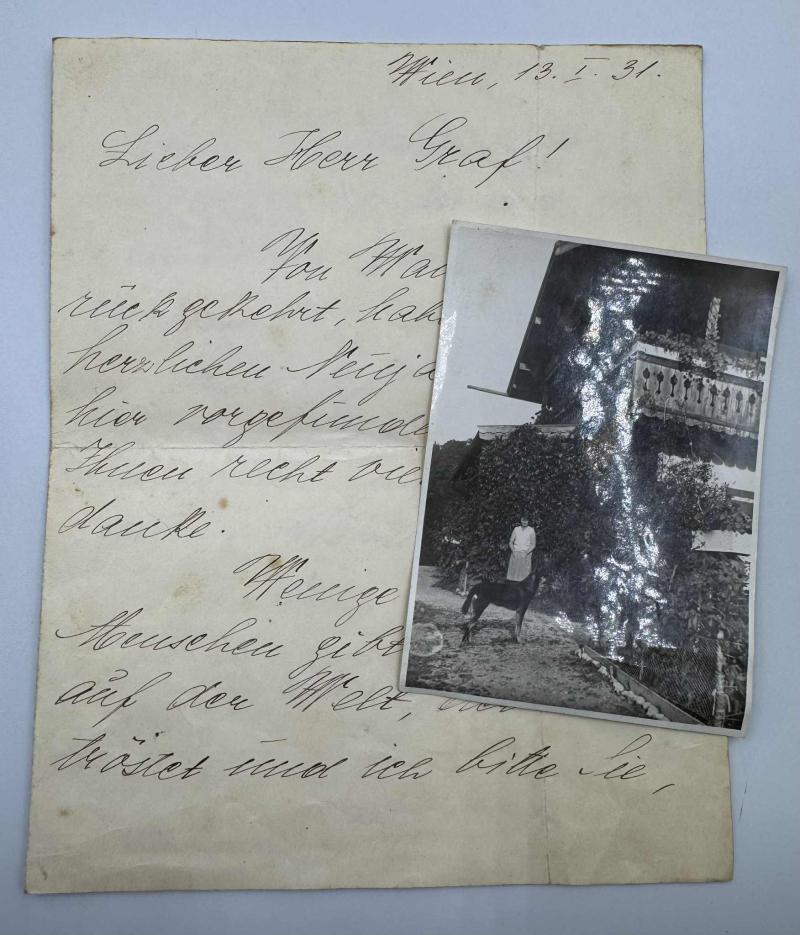 Wien, 13. I. 31.
Lieber Herr Graf!
Von
rückgekehrt,
herzlichen
hier
Ihnen recht
danke.
Wenige
Menschen gibt
auf der Welt,
tröstet und ich bitte Sie,